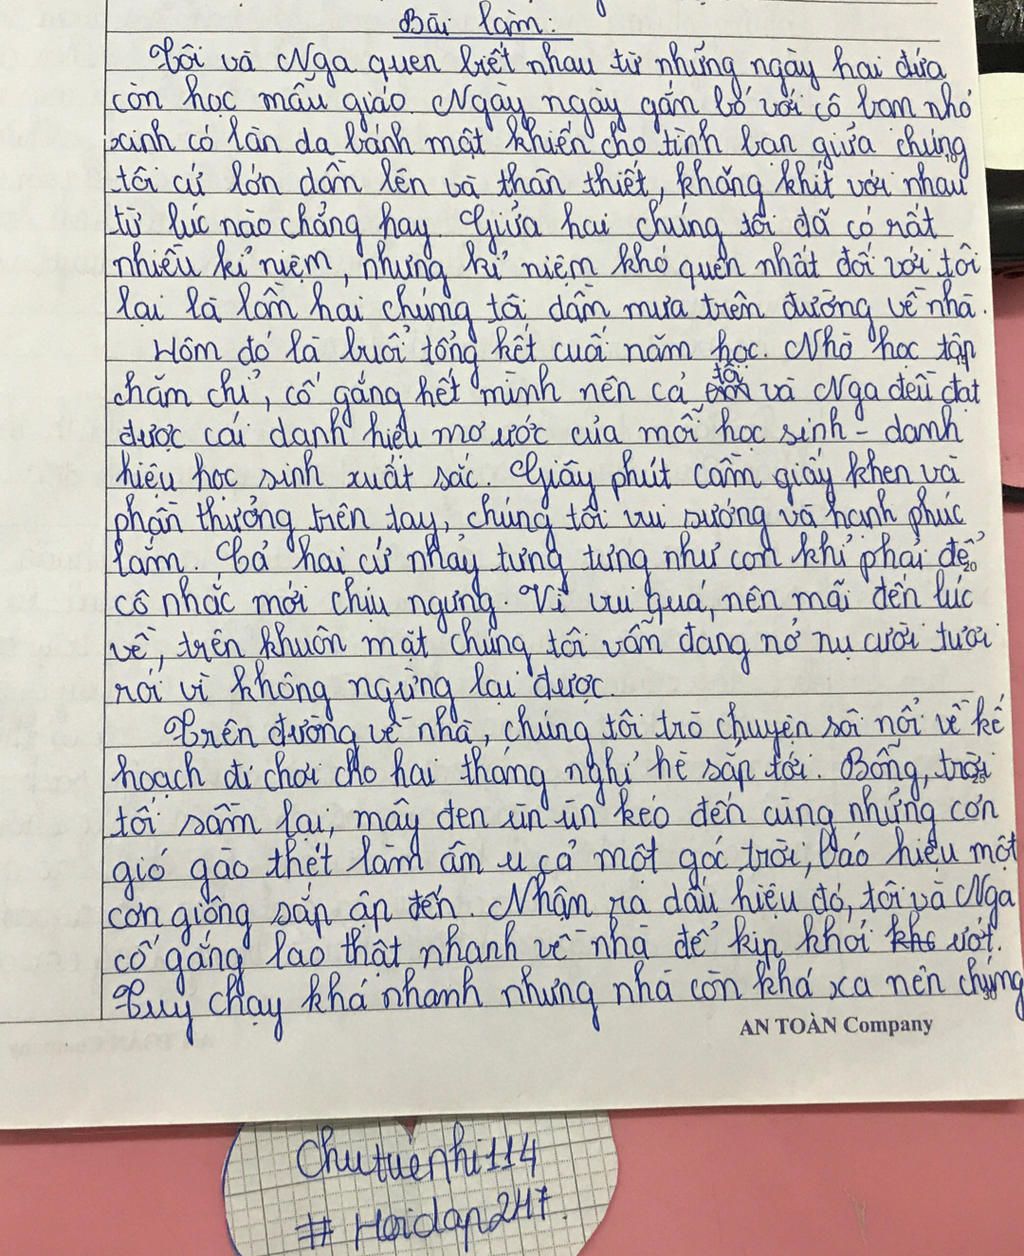 Bài làm.
Tôi và Nga quen biết nhau từ những ngày hai đứa
còn học mẫu giáo. Ngày ngày gắn bó với cô bạn nhỏ
xinh có làn da bánh mật khiến cho tình bạn giữa chúng
tôi cứ lớn dần lên và thân thiết, khăng khít với nhau
từ lúc nào chẳng hay. Giữa hai chúng tôi đã có rất
nhiều kỉ niệm, nhưng kỉ niệm khó quên nhất đối với tôi
lại là lần hai chúng tôi dầm mưa trên đường về nhà.
Hôm đó là buổi tổng kết cuối năm học. Nhờ học tập
chăm chỉ, cố gắng hết mình nên cả tôi và Nga đều đạt
được cái danh hiệu mơ ước của mỗi học sinh - danh
hiệu học sinh xuất sắc. Giây phút cầm giấy khen và
phần thưởng trên tay, chúng tôi vui sướng và hạnh phúc
lắm. Cả hai cứ nhảy tưng tưng như con khỉ phải để
cô nhắc mới chịu ngưng. Vì vui quá, nên mãi đến lúc
về, trên khuôn mặt chúng tôi vẫn đang nở nụ cười tươi
rói vì không ngừng lại được.
Trên đường về nhà, chúng tôi trò chuyện sôi nổi về kế
hoạch đi chơi cho hai tháng nghỉ hè sắp tới. Bỗng, trời
tối sầm lại, mây đen ùn ùn kéo đến cùng những cơn
gió gào thét làm âm u cả một góc trời, báo hiệu một
cơn giông sắp ập đến. Nhận ra dấu hiệu đó, tôi và Nga
cố gắng lao thật nhanh về nhà để kịp khỏi ướt.
Tuy chạy khá nhanh nhưng nhà còn khá xa nên chúng
AN TOÀN Company
Chutuenhi114
# Hoidap247.